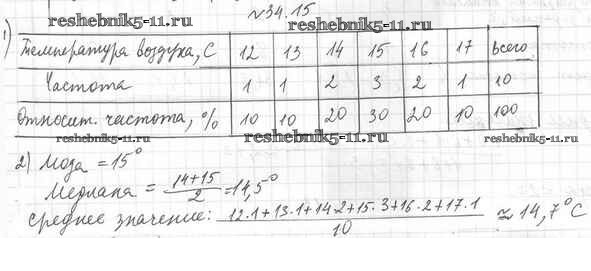 №34.15
reshebnik5-11.ru reshebnik5-11.ru
1) Температура воздуха, С 12 13 14 15 16 17 Всего
Частота 1 1 2 3 2 1 10
Относит. частота, % 10 10 20 30 20 10 100
reshebnik5-11.ru reshebnik5-11.ru reshebnik5-11.ru
2) Мода = 15°
Медиана = (14+15)/2 = 14,5°
Среднее значение: (12·1+13·1+14·2+15·3+16·2+17·1)/10 ≈ 14,7°С